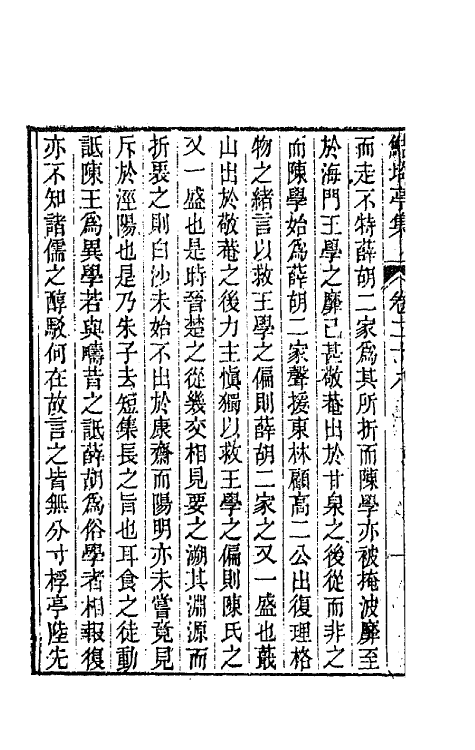 鮚埼亭集　卷二十八
而走不特薛胡二家爲其所折而陳學亦被掩波靡至
於海門王學之靡已甚敬菴出於甘泉之後從而非之
而陳學始爲薛胡二家聲援東林顧高二公出復理格
物之緒言以救王學之偏則薛胡二家之又一盛也蕺
山出於敬菴之後力主愼獨以救王學之偏則陳氏之
又一盛也是時晉楚之從幾交相見要之溯其淵源而
折裏之則白沙未始不出於康齋而陽明亦未嘗竟見
斥於涇陽也是乃朱子去短集長之旨也耳食之徒動
詆陳王爲異學若與疇昔之詆薛胡爲俗學者相報復
亦不知諸儒之醇駁何在故言之皆無分寸桴亭陸先